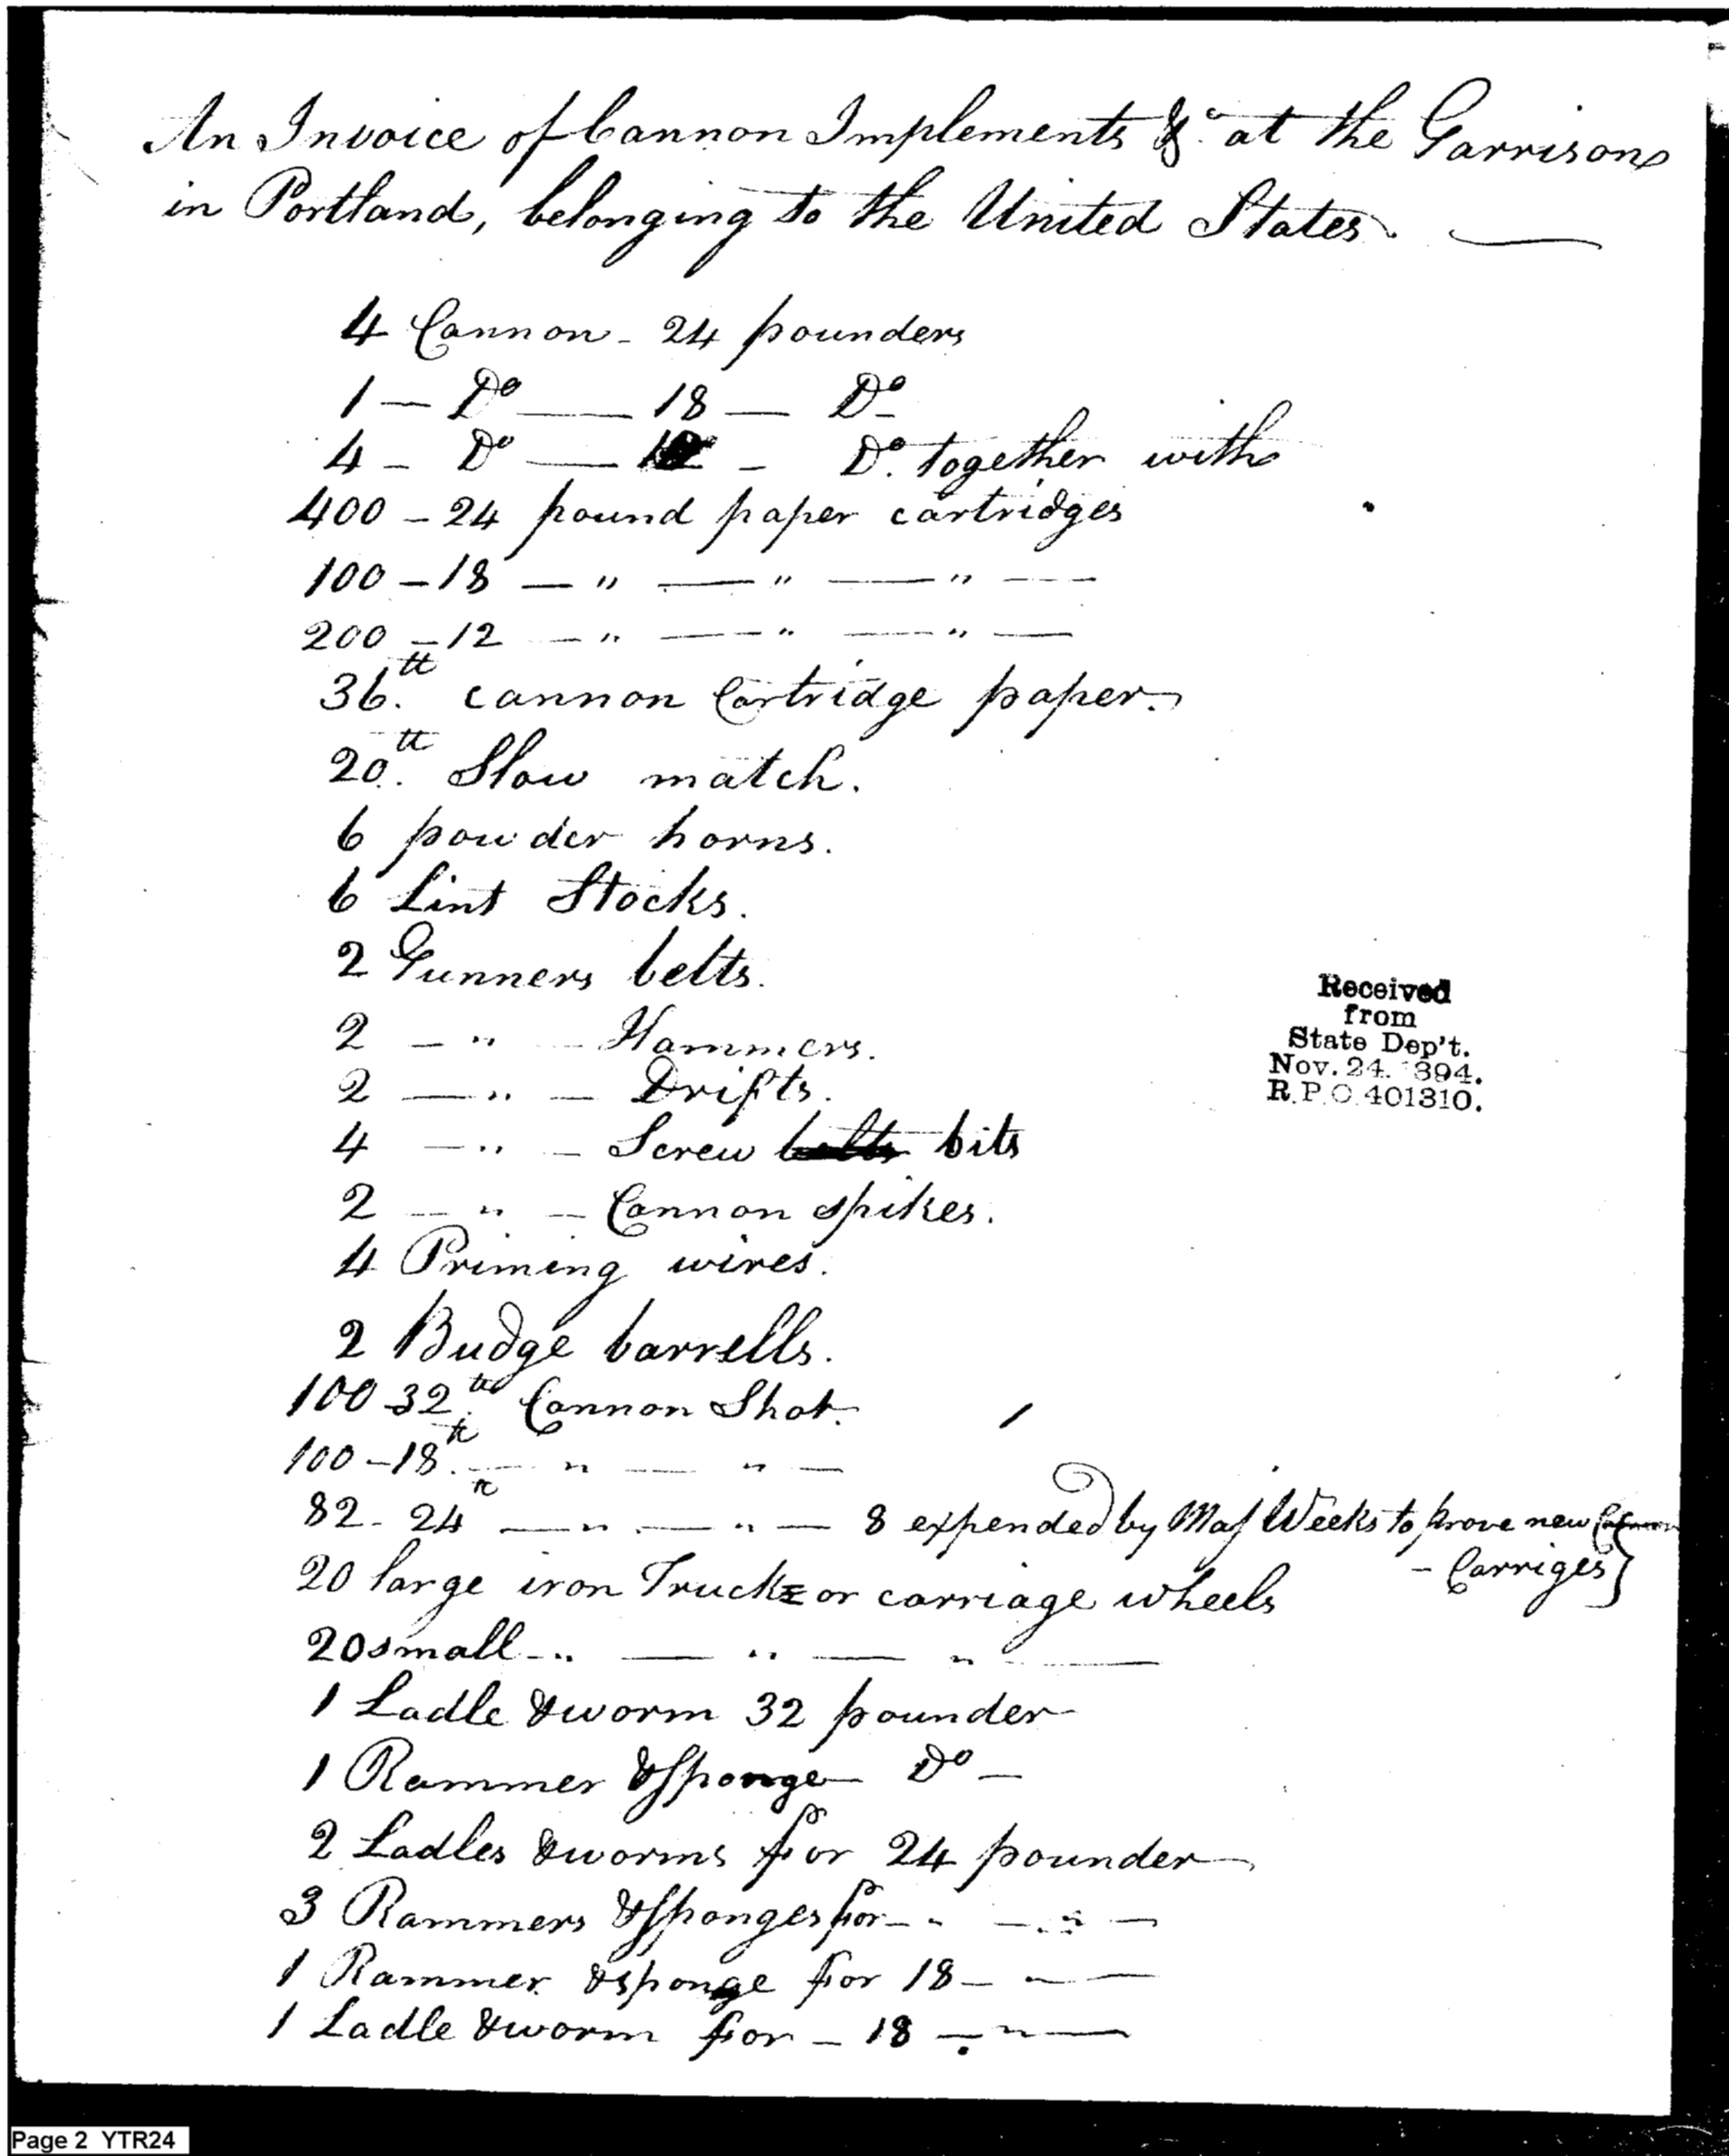 An Invoice of Cannon Implements &c. at the Garrison
in Portland, belonging to the United States. —
4 Cannon - 24 pounders
1 — Do — 18 — Do
4 - Do — - Do. together with
400 - 24 pound paper cartridges
100 - 18 — " — " — " —
200 - 12 — " — " — " —
36.tt cannon Cartridge paper.
20.tt Slow match.
6 powder horns.
6 Lint Stocks.
2 Gunners belts.
2 — " — Hammers.
2 — " — Drifts.
4 — " — Screw belts bits
2 — " — Cannon spikes.
4 Priming wires.
2 Budge barrells.
100 - 32.tt Cannon Shot.
100 - 18.tt — " — " —
82 - 24tt — " — " — 8 expended by Maj Weeks to prove new
- Carriges}
20 large iron Trucks or carriage wheels
20 small - " — " — " —
1 Ladle & worm 32 pounder
1 Rammer & Sponge Do —
2 Ladles & worms for 24 pounder
3 Rammers & Sponges for - " — " —
1 Rammer & sponge for 18 — " —
1 Ladle & worm for - 18 — " —
Received
from
State Dep't.
Nov. 24. 1894.
R.P.O. 401310.
Page 2 YTR24